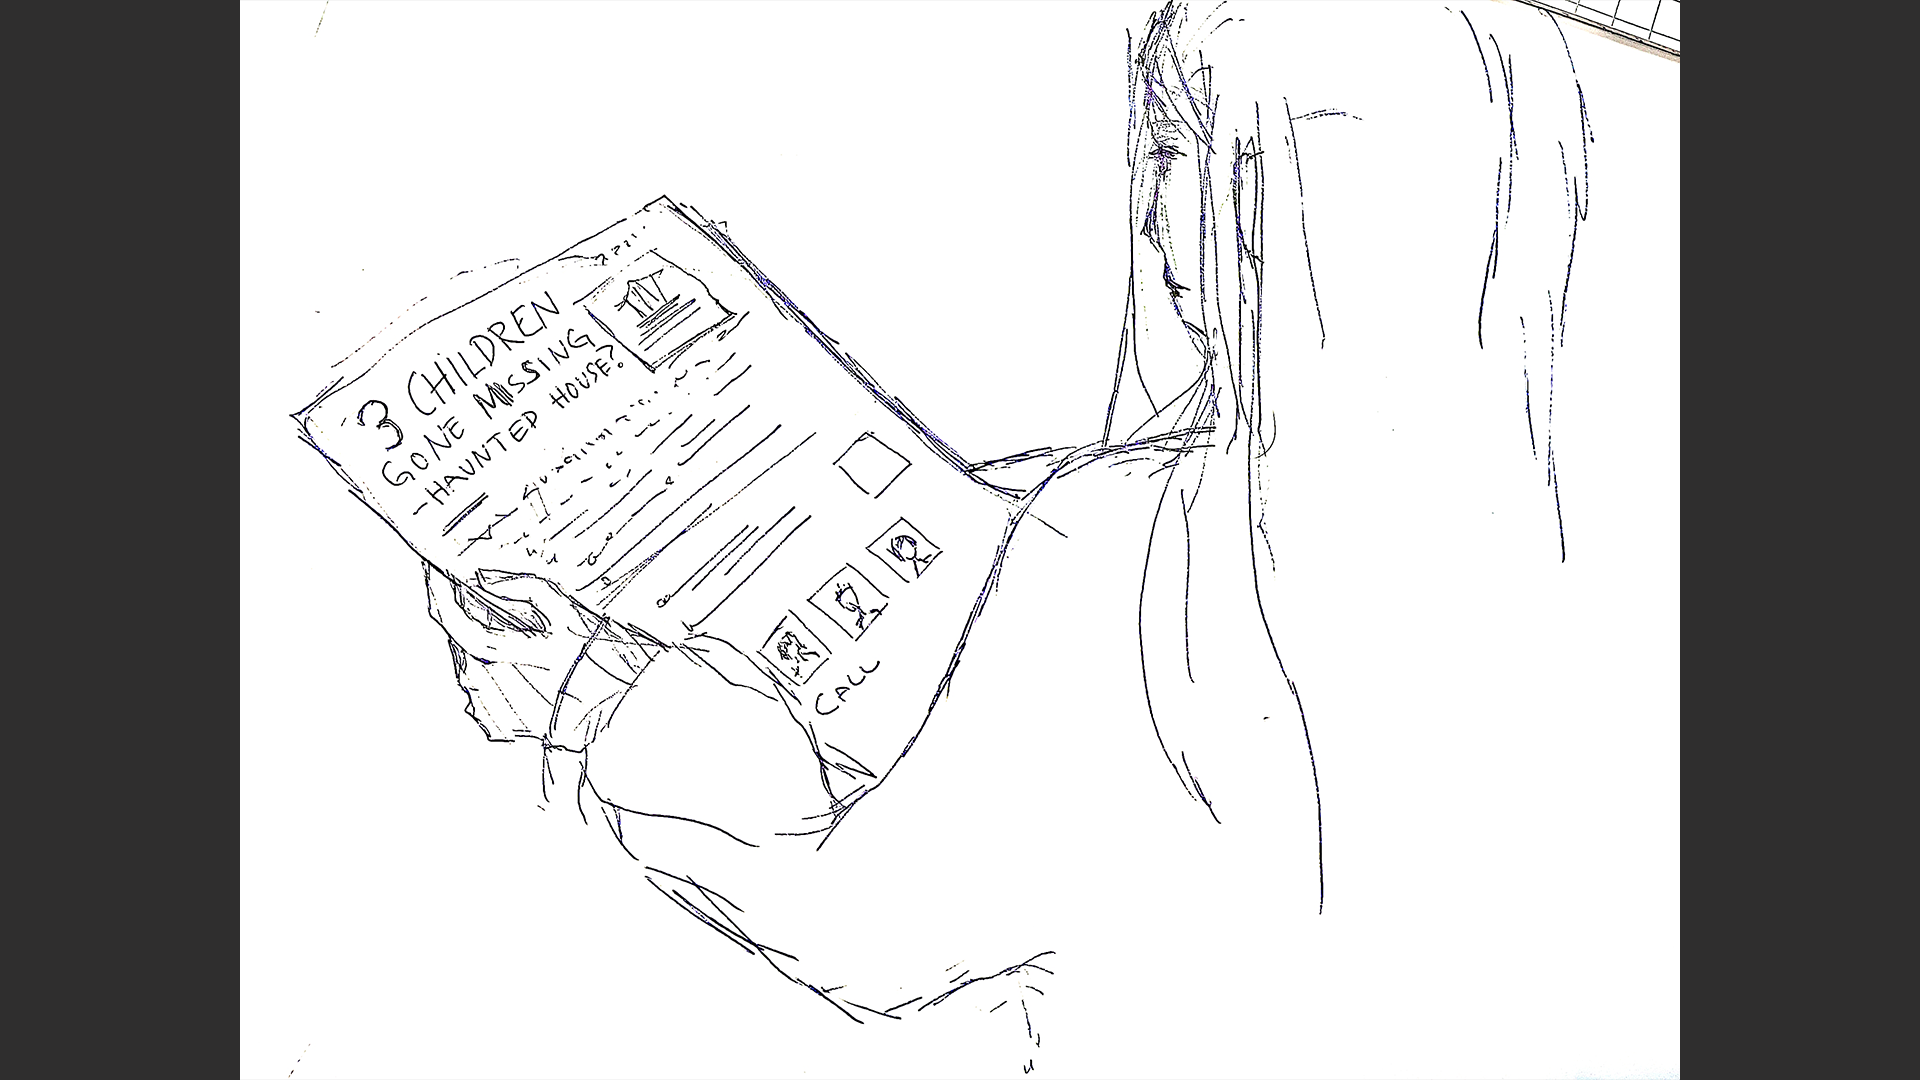 3 CHILDREN
GONE MISSING
-HAUNTED HOUSE?
CALL